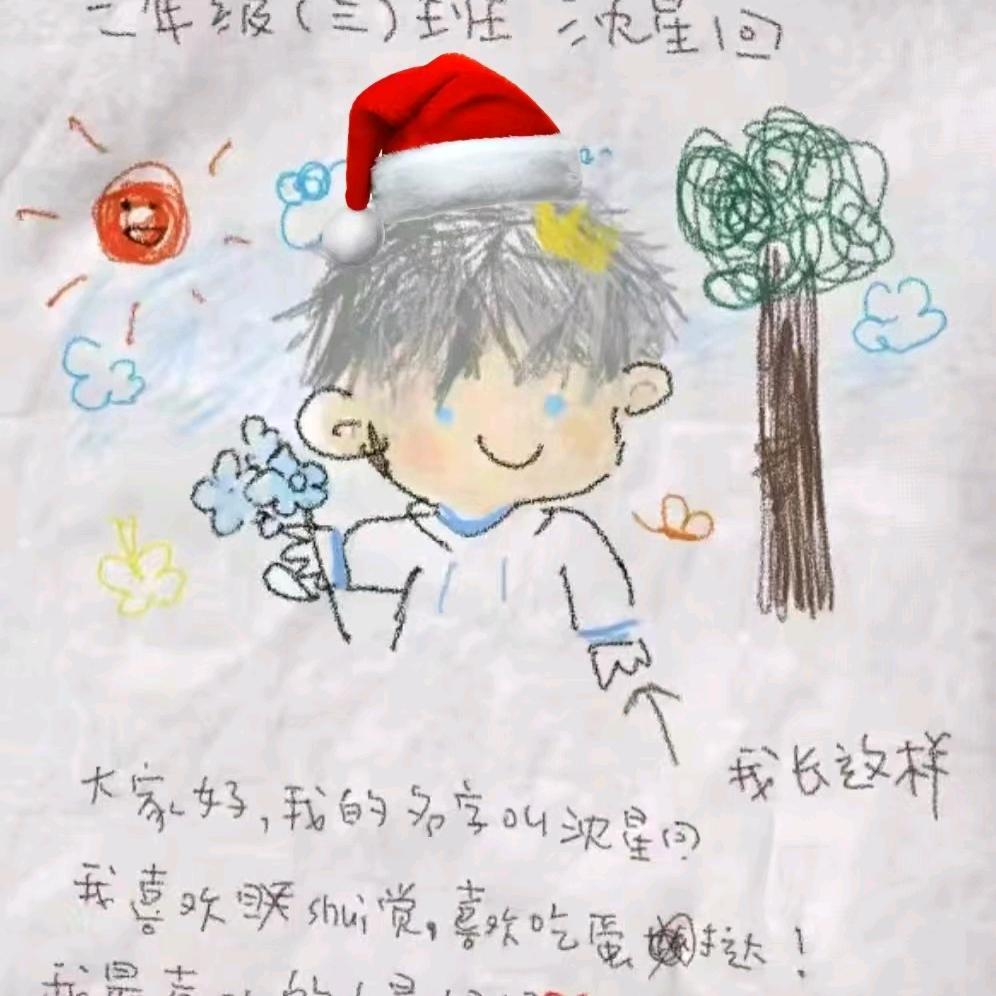 二年级(三)班 沈星回
我长这样
大家好,我的名字叫沈星回
我喜欢shui觉,喜欢吃蛋挞!
我最喜